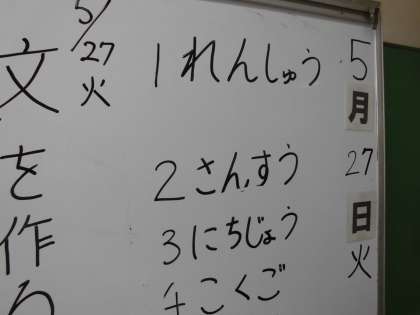 5月27日火
1 れんしゅう
2 さんすう
3 にちじょう
4 こくご
5/27火
文を作ろ